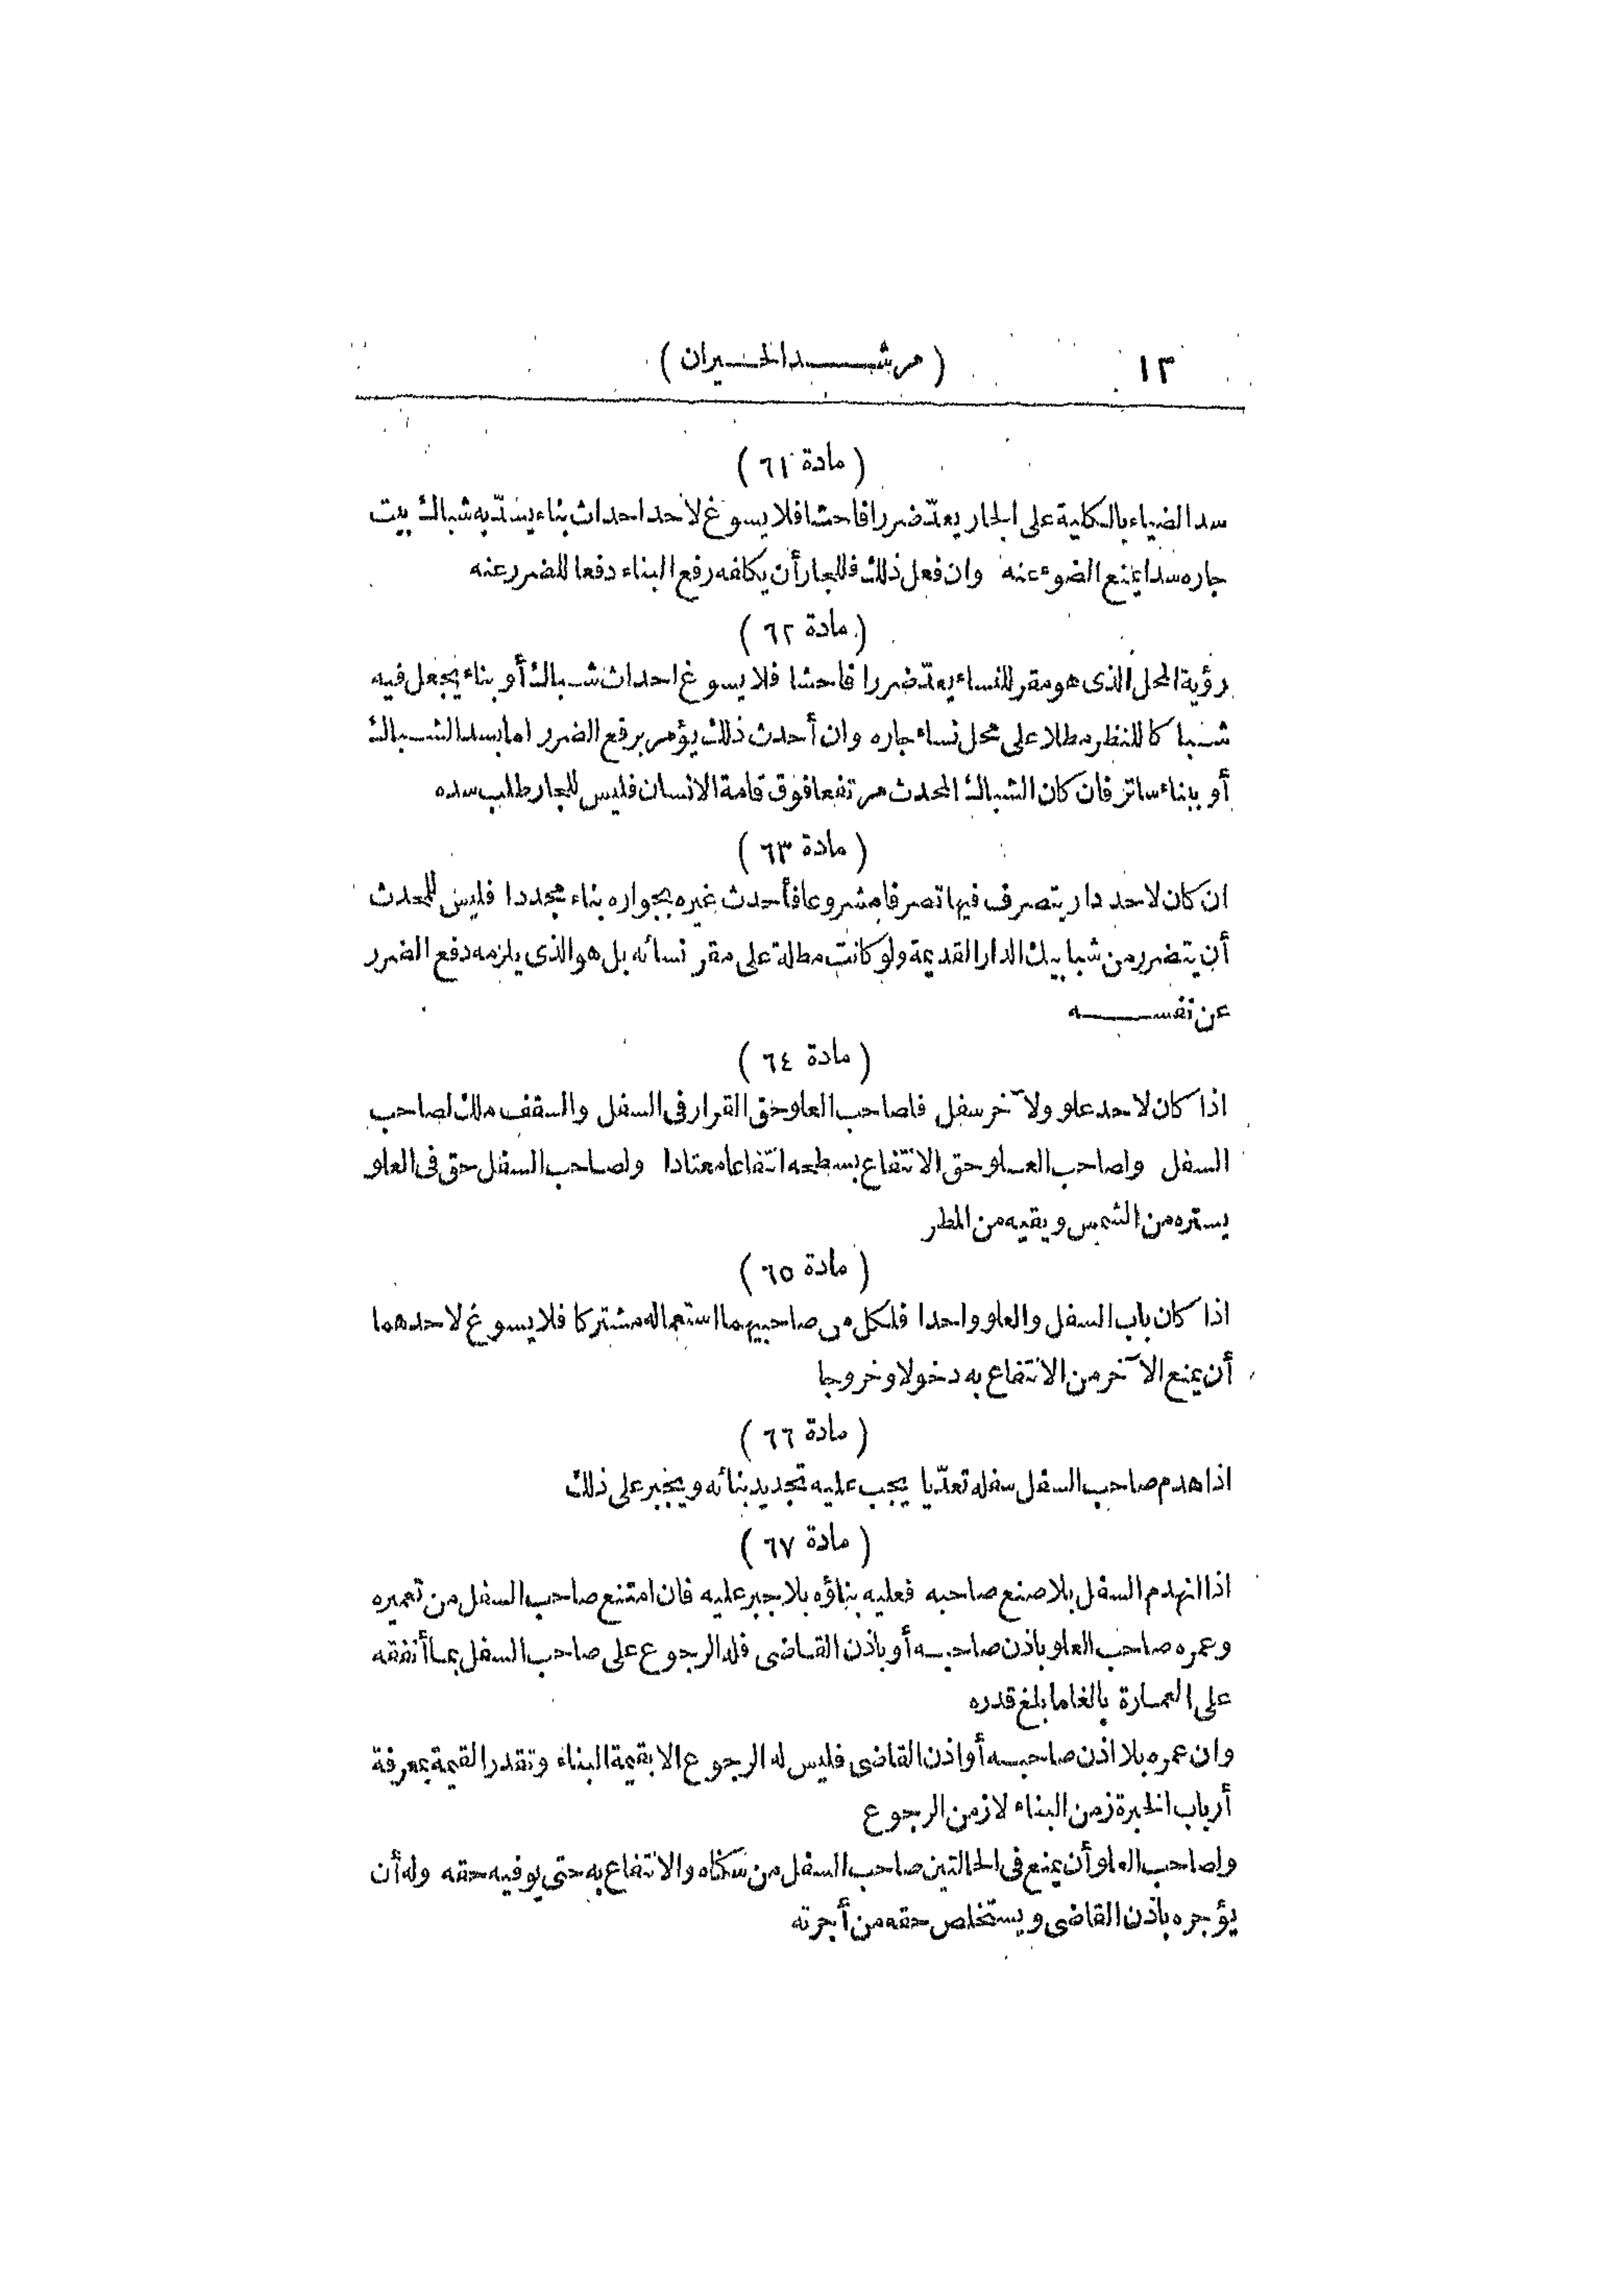 ١٢ ( مرشد الحيران )
( مادة ٦١ )
سد الضياء بالكلية على الجار يعدّ ضررا فاحشا فلا يسوغ لاحد احداث بناء يسدّ به شباك بيت
جاره سدا يمنع الضوء عنه وان فعل ذلك فللجار أن يكلفه رفع البناء دفعا للضرر عنه
( مادة ٦٢ )
رؤية المحل الذى هو مقر للنساء يعدّ ضررا فاحشا فلا يسوغ احداث شباك أو بناء يجعل فيه
شباكا للنظر مطلا على محل نساء جاره وان أحدث ذلك يؤمر برفع الضرر اما بسد الشباك
أو ببناء ساتر فان كان الشباك المحدث مرتفعا فوق قامة الانسان فليس للجار طلب سده
( مادة ٦٣ )
ان كان لاحد دار يتصرف فيها تصرفا مشروعا فأحدث غيره بجواره بناء مجددا فليس للمحدث
أن يتضرر من شبابيك الدار القديمة ولو كانت مطلة على مقر نسائه بل هو الذى يلزمه دفع الضرر
عن نفسه
( مادة ٦٤ )
اذا كان لاحد علو ولآخر سفل فلصاحب العلو حق القرار فى السفل والسقف ملك لصاحب
السفل ولصاحب العلو حق الانتفاع بسطحه انتفاعا معتادا ولصاحب السفل حق فى العلو
يستره من الشمس ويقيه من المطر
( مادة ٦٥ )
اذا كان باب السفل والعلو واحدا فلكل من صاحبيهما استعماله مشتركا فلا يسوغ لاحدهما
أن يمنع الآخر من الانتفاع به دخولا وخروجا
( مادة ٦٦ )
اذا هدم صاحب السفل سفله تعدّيا يجب عليه تجديد بنائه ويجبر على ذلك
( مادة ٦٧ )
اذا انهدم السفل بلا صنع صاحبه فعليه بناؤه بلا جبر عليه فان امتنع صاحب السفل من تعميره
وعمره صاحب العلو باذن صاحبه أو باذن القاضى فله الرجوع على صاحب السفل بما أنفقه
على العمارة بالغا ما بلغ قدره
وان عمره بلا اذن صاحبه أو اذن القاضى فليس له الرجوع الا بقيمة البناء وتقدر القيمة بمعرفة
أرباب الخبرة زمن البناء لا زمن الرجوع
ولصاحب العلو أن يمنع فى الحالتين صاحب السفل من سكناه والانتفاع به حتى يوفيه حقه وله أن
يؤجره باذن القاضى ويستخلص حقه من أجرته